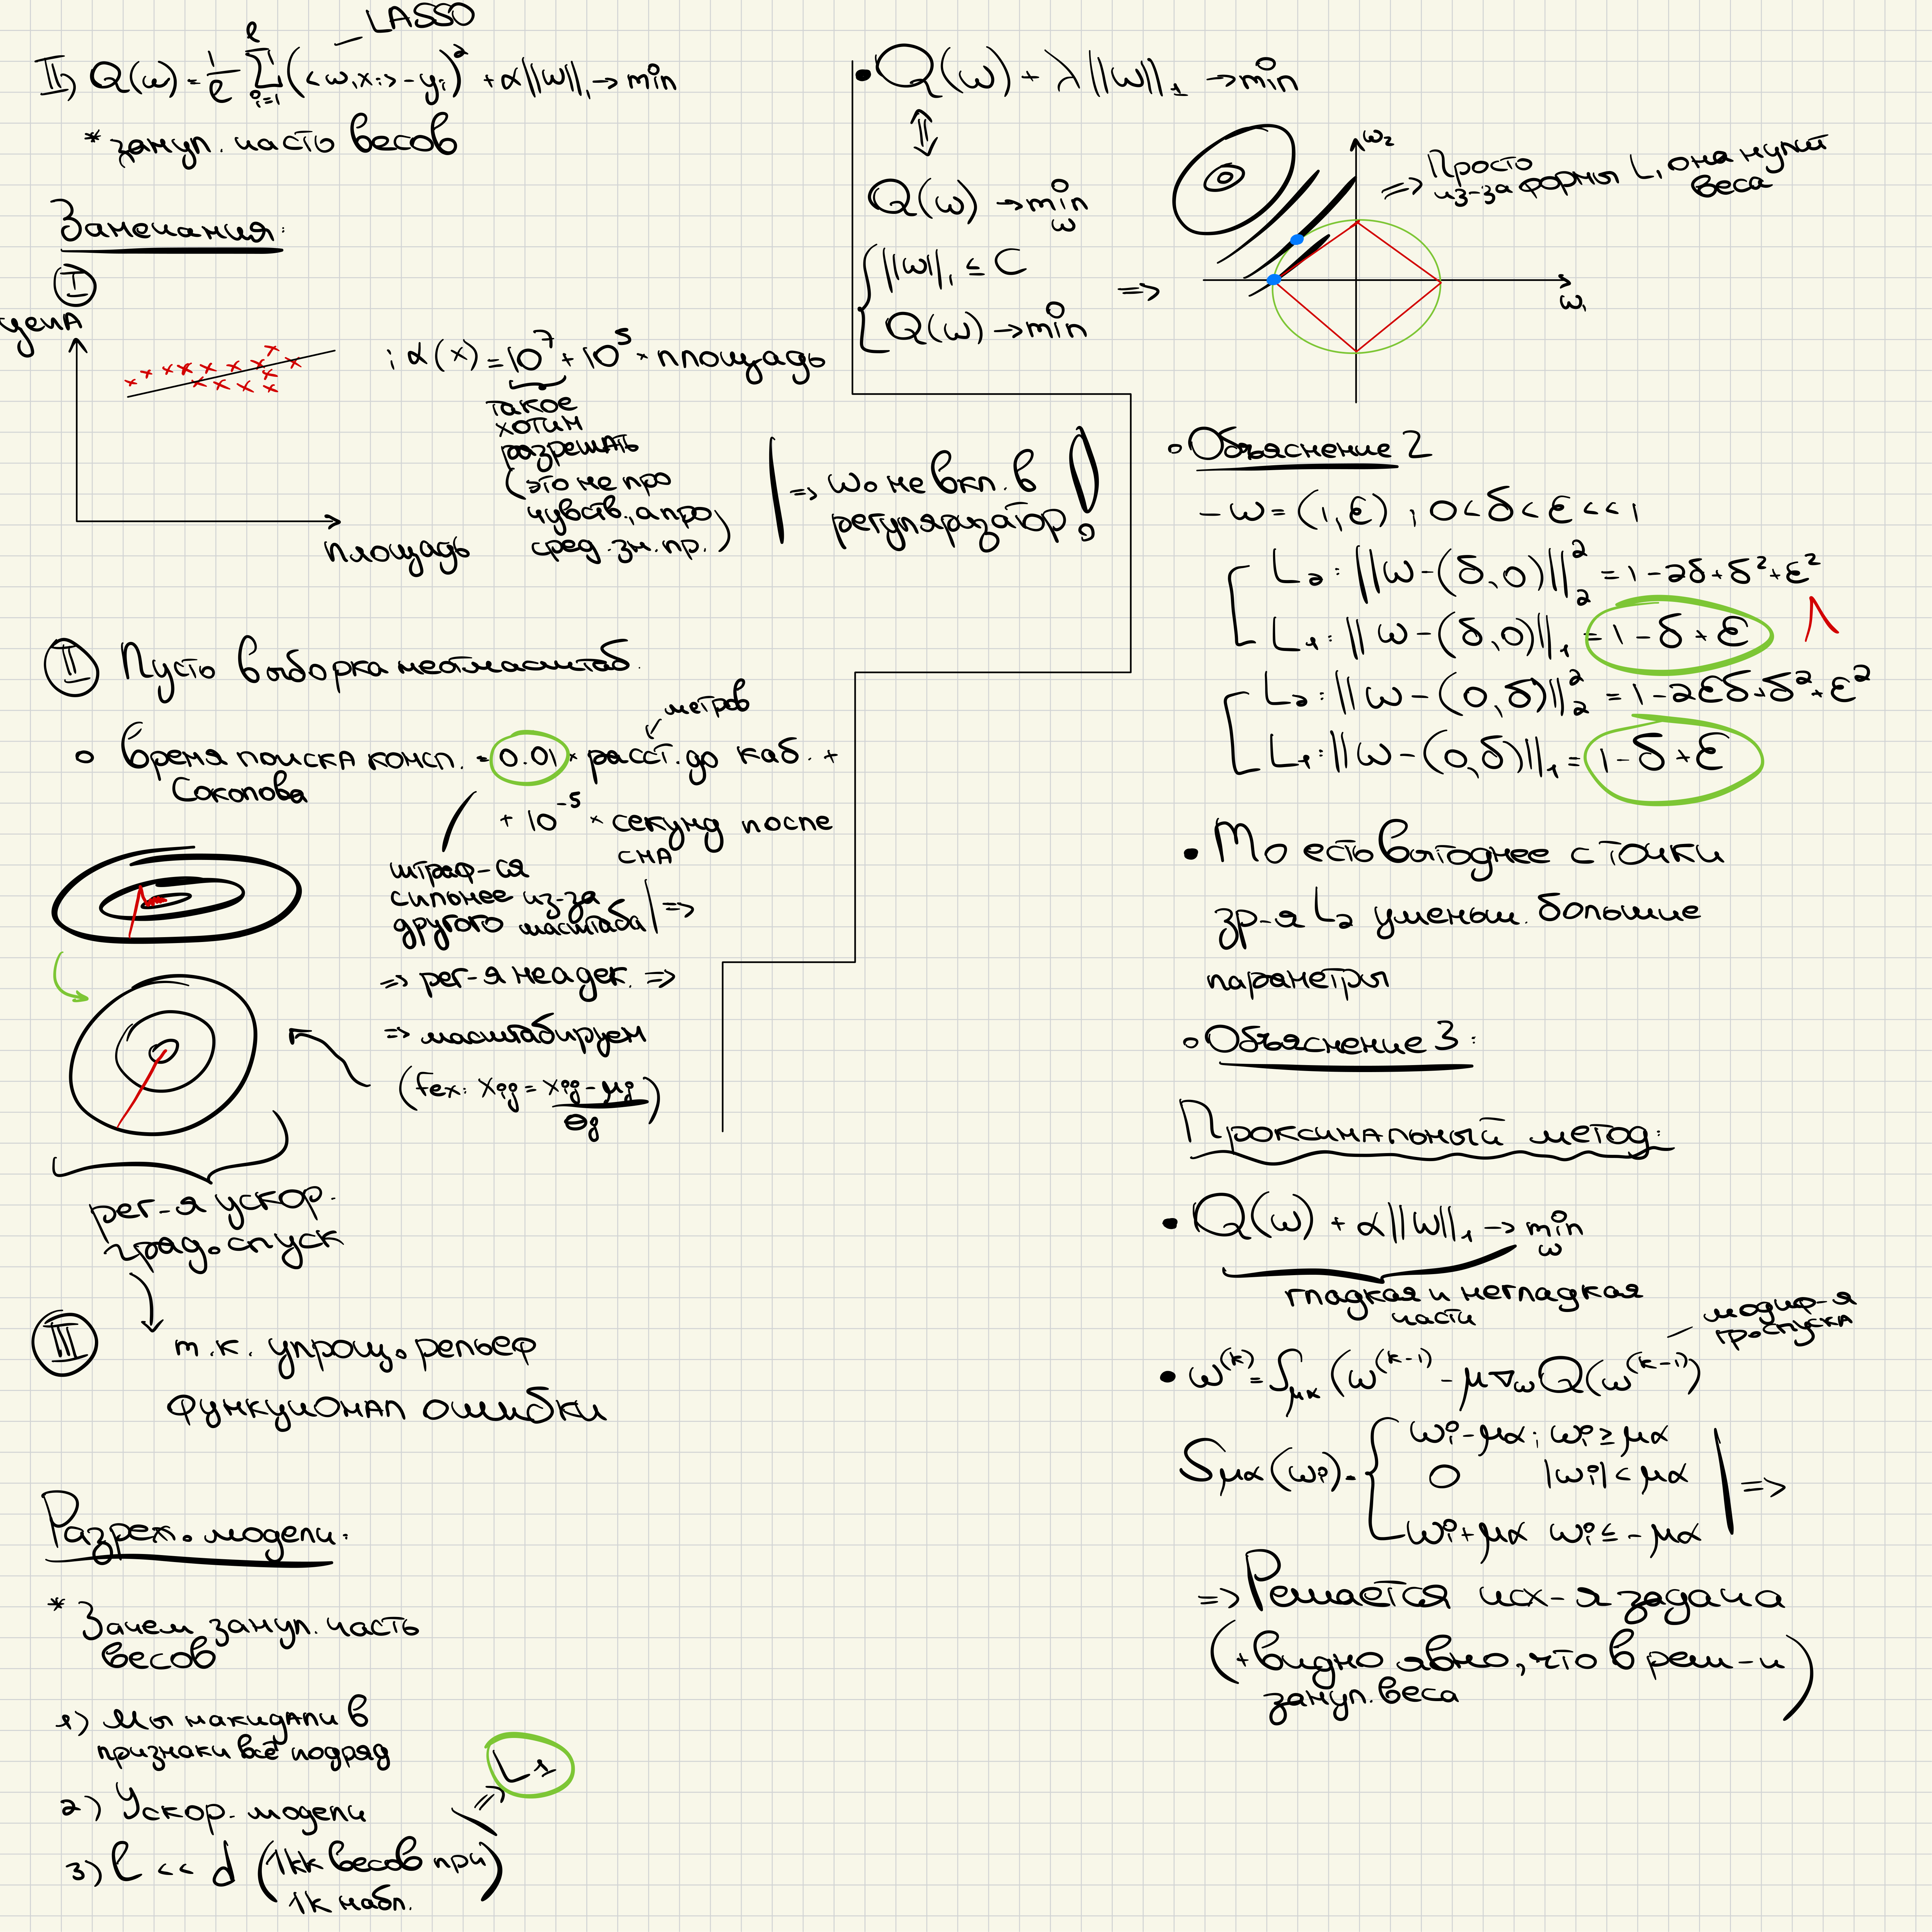 — LASSO
II) Q(ω) = 1/ℓ ∑_{i=1}^{ℓ} (<ω,x_i> - y_i)² + α||ω||₁ → min
* занул. часть весов
Замечания:
I
цена
площадь
; α(x) = 10⁷ + 10⁵ × площадь
такое
хотим
разрешать
(это не про
чувств., а про
сред. зн. пр.)
=> ω₀ не вкл. в
регуляризатор!
II Пусть выборка неотмасштаб.
метров
∘ Время поиска консп. = 0.01 × расст. до каб. +
Соколова
+ 10⁻⁵ × секунд после
сна
штраф-ся
сильнее из-за
другого масштаба | =>
=> рег-я неадек. =>
=> масштабируем
(fex: x_ij = (x_ij - μ_j)/σ_j)
рег-я ускор.
град. спуск
III
т.к. упрощ. рельеф
функционал ошибки
Разреж. модели:
* Зачем занул. часть
весов
1) Мы накидали в
признаки всё подряд
2) Ускор. модели
3) ℓ << d (1кк весов при
1к набл.)
=> L₁
• Q(ω) + λ||ω||₁ → min
⇕
Q(ω) → min_ω
{ ||ω||₁ ≤ C
Q(ω) → min
=>
ω₂
ω₁
=> Просто
из-за формы L₁ она нулит
веса
∘ Объяснение 2
- ω = (1, ε) ; 0 < δ < ε << 1
L₂: ||ω - (δ, 0)||₂² = 1 - 2δ + δ² + ε²
L₁: ||ω - (δ, 0)||₁ = 1 - δ + ε
Λ
L₂: ||ω - (0, δ)||₂² = 1 - 2εδ + δ² + ε²
L₁: ||ω - (0, δ)||₁ = 1 - δ + ε
• То есть выгоднее с точки
зр-я L₂ уменьш. большие
параметры
∘ Объяснение 3:
Проксимальный метод:
• Q(ω) + α||ω||₁ → min_ω
гладкая и негладкая
части
— модиф-я
гр. спуска
• ω^(k) = S_μα (ω^(k-1) - μ∇_ω Q(ω^(k-1))
S_μα(ω_i) = { ω_i - μα; ω_i ≥ μα
0 |ω_i| < μα
ω_i + μα ω_i ≤ - μα
=>
=> Решается исх-я задача
(+ видно явно, что в реш-и
занул. веса)